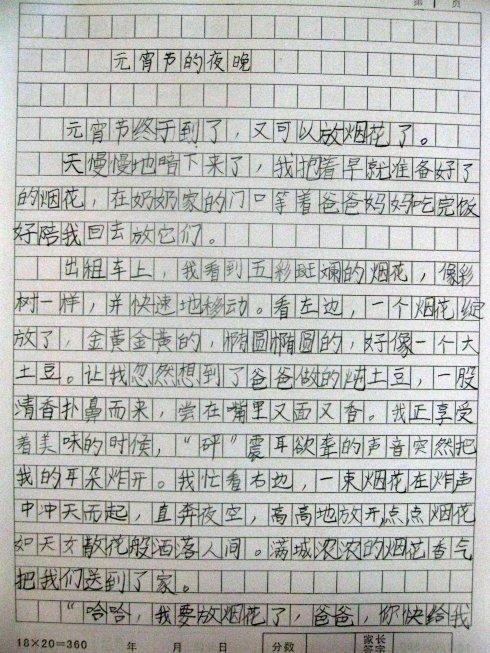 第1页
元宵节的夜晚
元宵节终于到了，又可以放烟花了。
天慢慢地暗下来了，我抱着早就准备好了
的烟花，在奶奶家的门口等着爸爸妈妈吃完饭
好陪我回去放它们。
出租车上，我看到五彩斑斓的烟花，像彩
树一样，并快速地移动。看左边，一个烟花绽
放了，金黄金黄的，椭圆椭圆的，好像一个大
土豆。让我忽然想到了爸爸做的炖土豆，一股
清香扑鼻而来，尝在嘴里又面又香。我正享受
着美味的时候，“砰”震耳欲聋的声音突然把
我的耳朵炸开。我忙看右边，一束烟花在炸声
中冲天而起，直奔夜空，高高地放开点点烟花
如天女散花般洒落人间。满城浓浓的烟花香气
把我们送到了家。
“哈哈，我要放烟花了，爸爸，你快给我
18×20=360 年 月 日 分数 家长签字